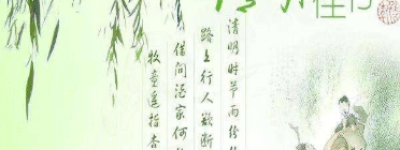 清明时节雨纷纷
路上行人欲断
借问酒家何
牧童遥指杏